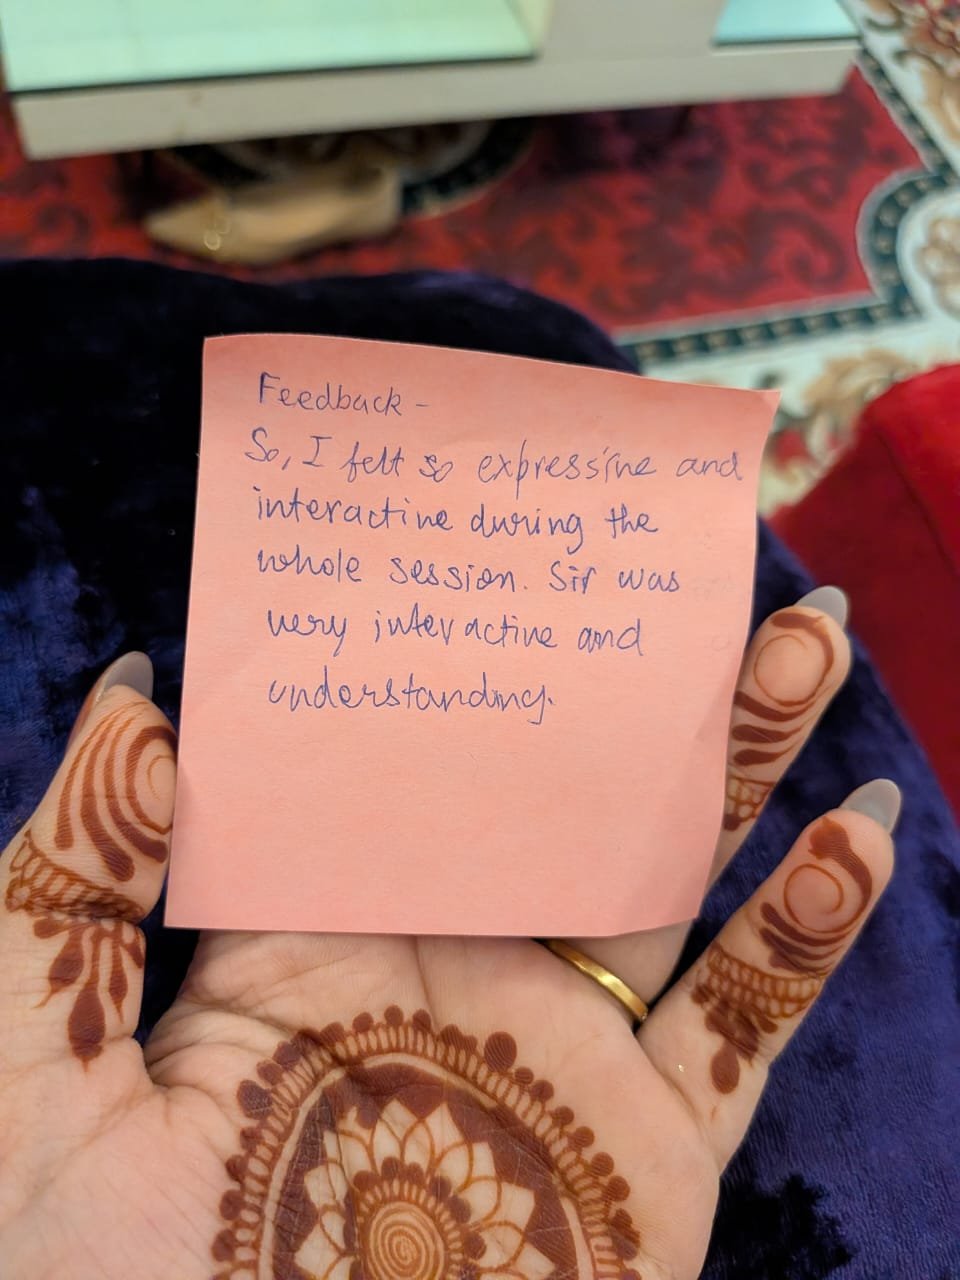 Feedback -
So, I felt so expressive and
interactive during the
whole session. Sir was
very interactive and
understanding.